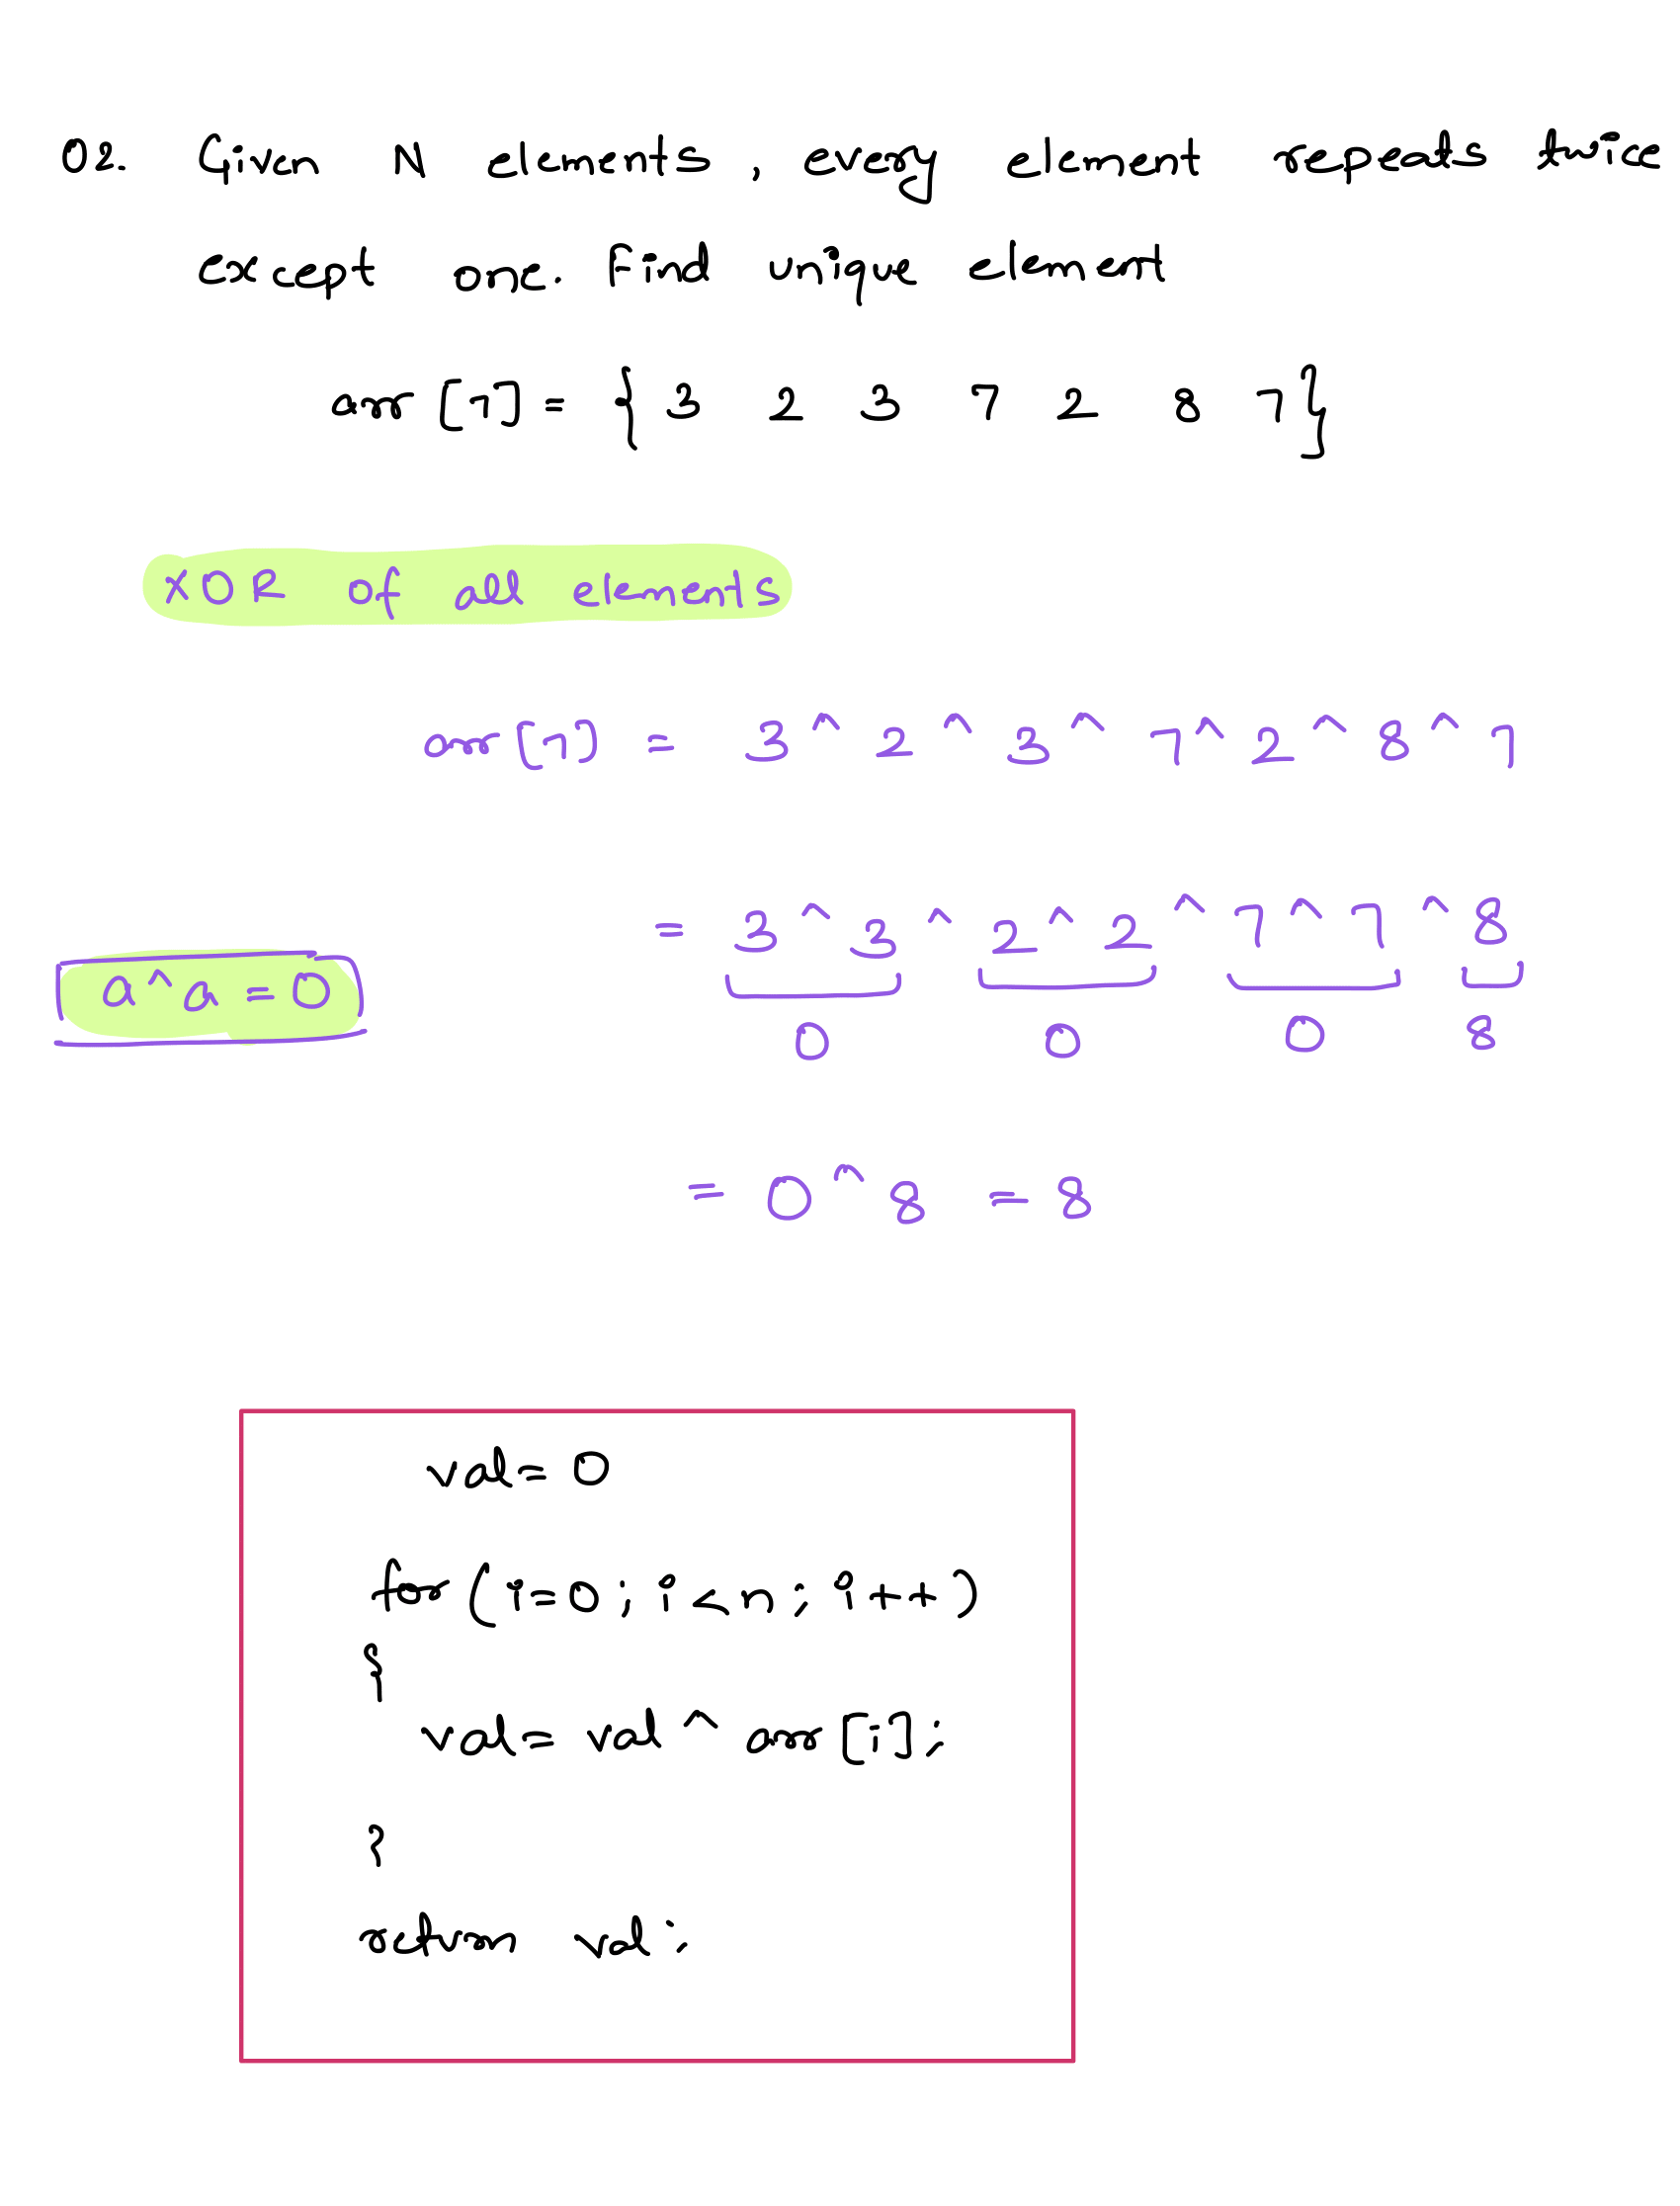 Q2. Given N elements, every element repeats twice
except one. Find unique element
arr [7] = { 3 2 3 7 2 8 7}
XOR of all elements
arr [7] = 3 ^ 2 ^ 3 ^ 7 ^ 2 ^ 8 ^ 7
= 3 ^ 3 ^ 2 ^ 2 ^ 7 ^ 7 ^ 8
a ^ a = 0
0 0 0 8
= 0 ^ 8 = 8
val = 0
for (i=0 ; i<n ; i++)
{
val = val ^ arr [i];
}
return val;